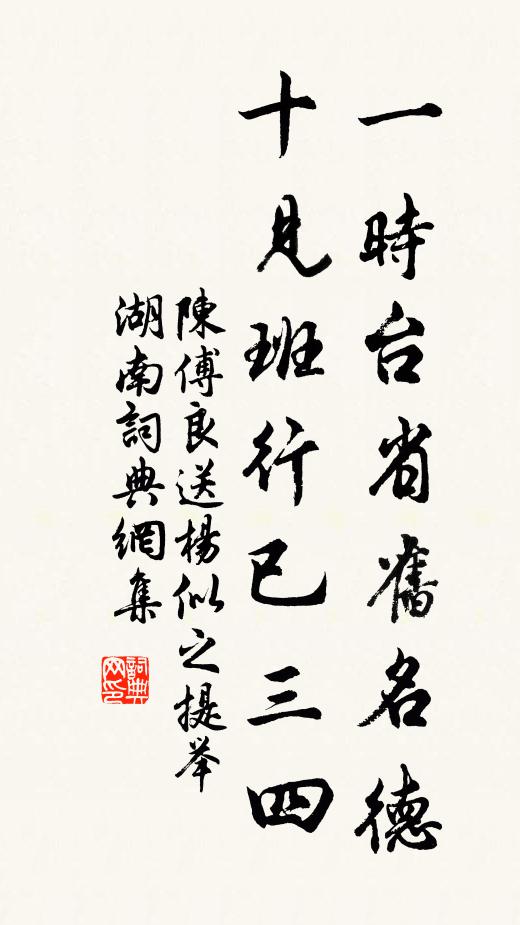 一時台省舊名德
十見班行已三四
陳傅良送楊似之提举
湖南詞典網集
詞典网印